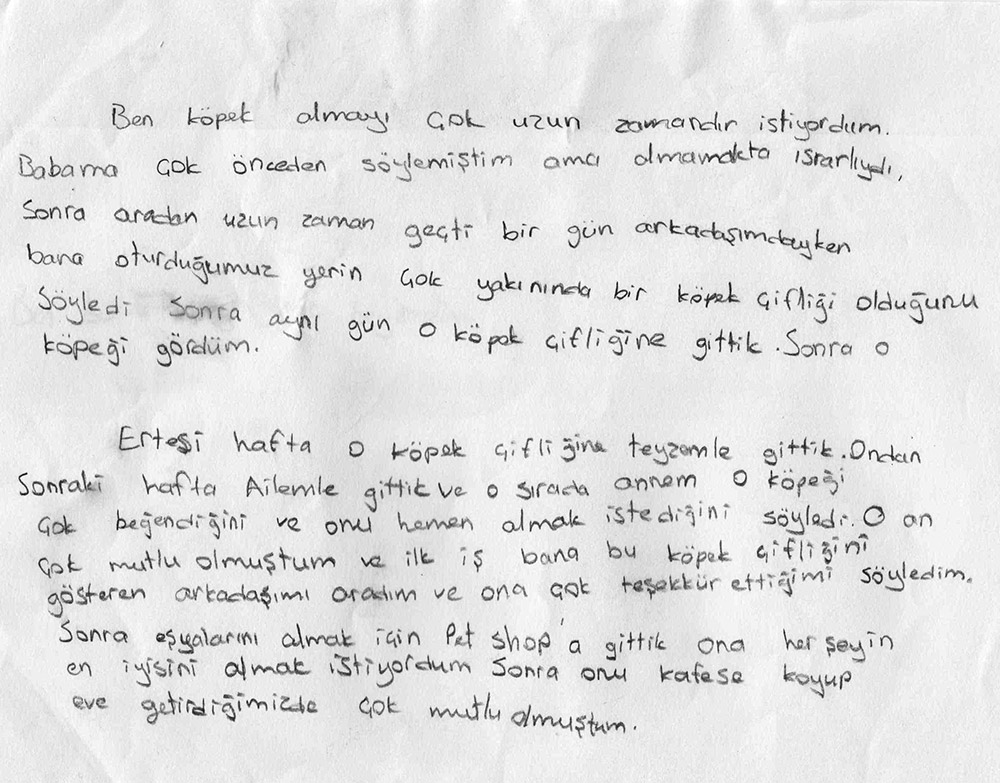 Ben köpek almayı çok uzun zamandır istiyordum.
Babama çok önceden söylemiştim ama almamakta ısrarlıydı,
Sonra aradan uzun zaman geçti bir gün arkadaşımdayken
bana oturduğumuz yerin çok yakınında bir köpek çifliği olduğunu
söyledi Sonra aynı gün o köpek çifliğine gittik. Sonra o
köpeği gördüm.
Ertesi hafta o köpek çifliğine teyzemle gittik. Ondan
Sonraki hafta Ailemle gittik ve o sırada annem o köpeği
çok beğendiğini ve onu hemen almak istediğini söyledi. O an
çok mutlu olmuştum ve ilk iş bana bu köpek çifliğini
gösteren arkadaşımı aradım ve ona çok teşekkür ettiğimi söyledim.
Sonra eşyalarını almak için Pet shop'a gittik ona her şeyin
en iyisini almak istiyordum Sonra onu kafese koyup
eve getirdiğimizde çok mutlu olmuştum.